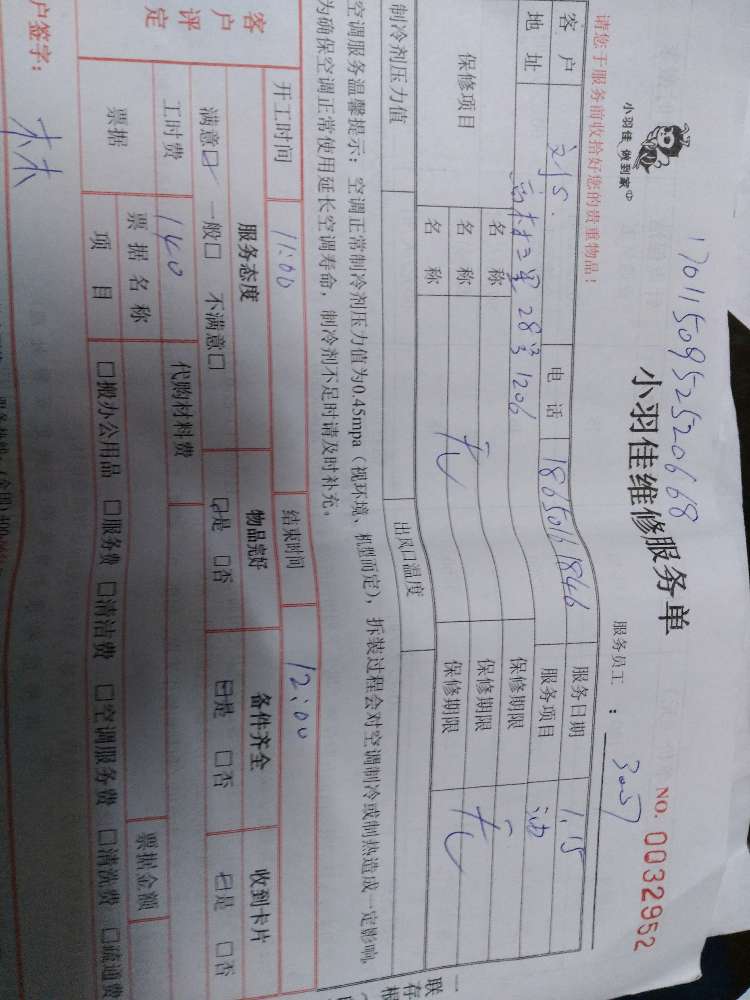 17011509525520668
小羽佳 做到家
小羽佳维修服务单
NO. 0032952
请您于服务前收拾好您的贵重物品！
服务员工：3057
客户 电话 18650161846 服务日期 1.15
地址 28号1206 服务项目 油
保修项目 名称 保修期限
名称 无 保修期限 无
名称 保修期限
制冷剂压力值 出风口温度
空调服务温馨提示：空调正常制冷剂压力值为0.45mpa（视环境、机型而定），拆装过程会对空调制冷或制热造成一定影响，
为确保空调正常使用延长空调寿命，制冷剂不足时请及时补充。
开工时间 11:00 结束时间 12:00
客户评定 服务态度 物品完好 备件齐全 收到卡片
满意☑ 一般□ 不满意□ ☑是 □否 ☑是 □否 ☑是 □否
工时费 140 代购材料费
票据 票据名称 票据金额
项目 □搬办公用品 □服务费 □清洁费 □空调服务费 □清洗费 □疏通费
户签字：
一
联
存
根